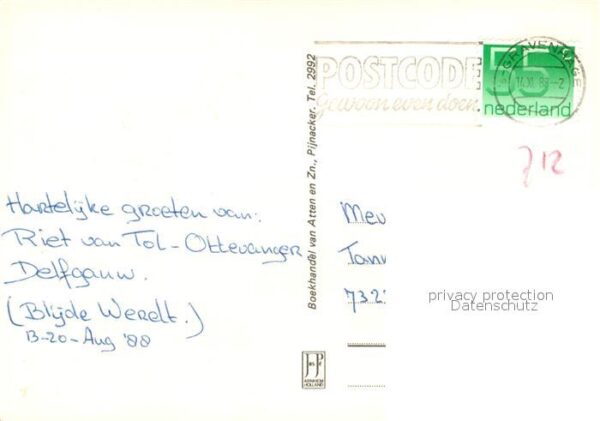 POSTCODE
gewoon even doen.
'S-GRAVENHAGE
55
nederland
712
Hartelijke groeten van:
Riet van Tol-Ottevanger
Delfgauw.
(Blijde Werelt.)
13-20-Aug '88
Boekhandel van Atten en Zn., Pijnacker. Tel. 2992
Mev
732
privacy protection
Datenschutz
ARNHEM
HOLLAND